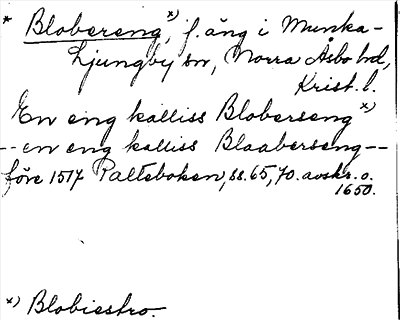 * Blobereng *), f. äng i Munka-
Ljungby sn, Norra Åsbo hd,
Krist. l.
En eng kalliss Bloberseng *)
-- en eng kalliss Blaaberseng --
före 1517 Palteboken, ss. 65, 70. avskr. o.
1650.
*) Blobiestro.